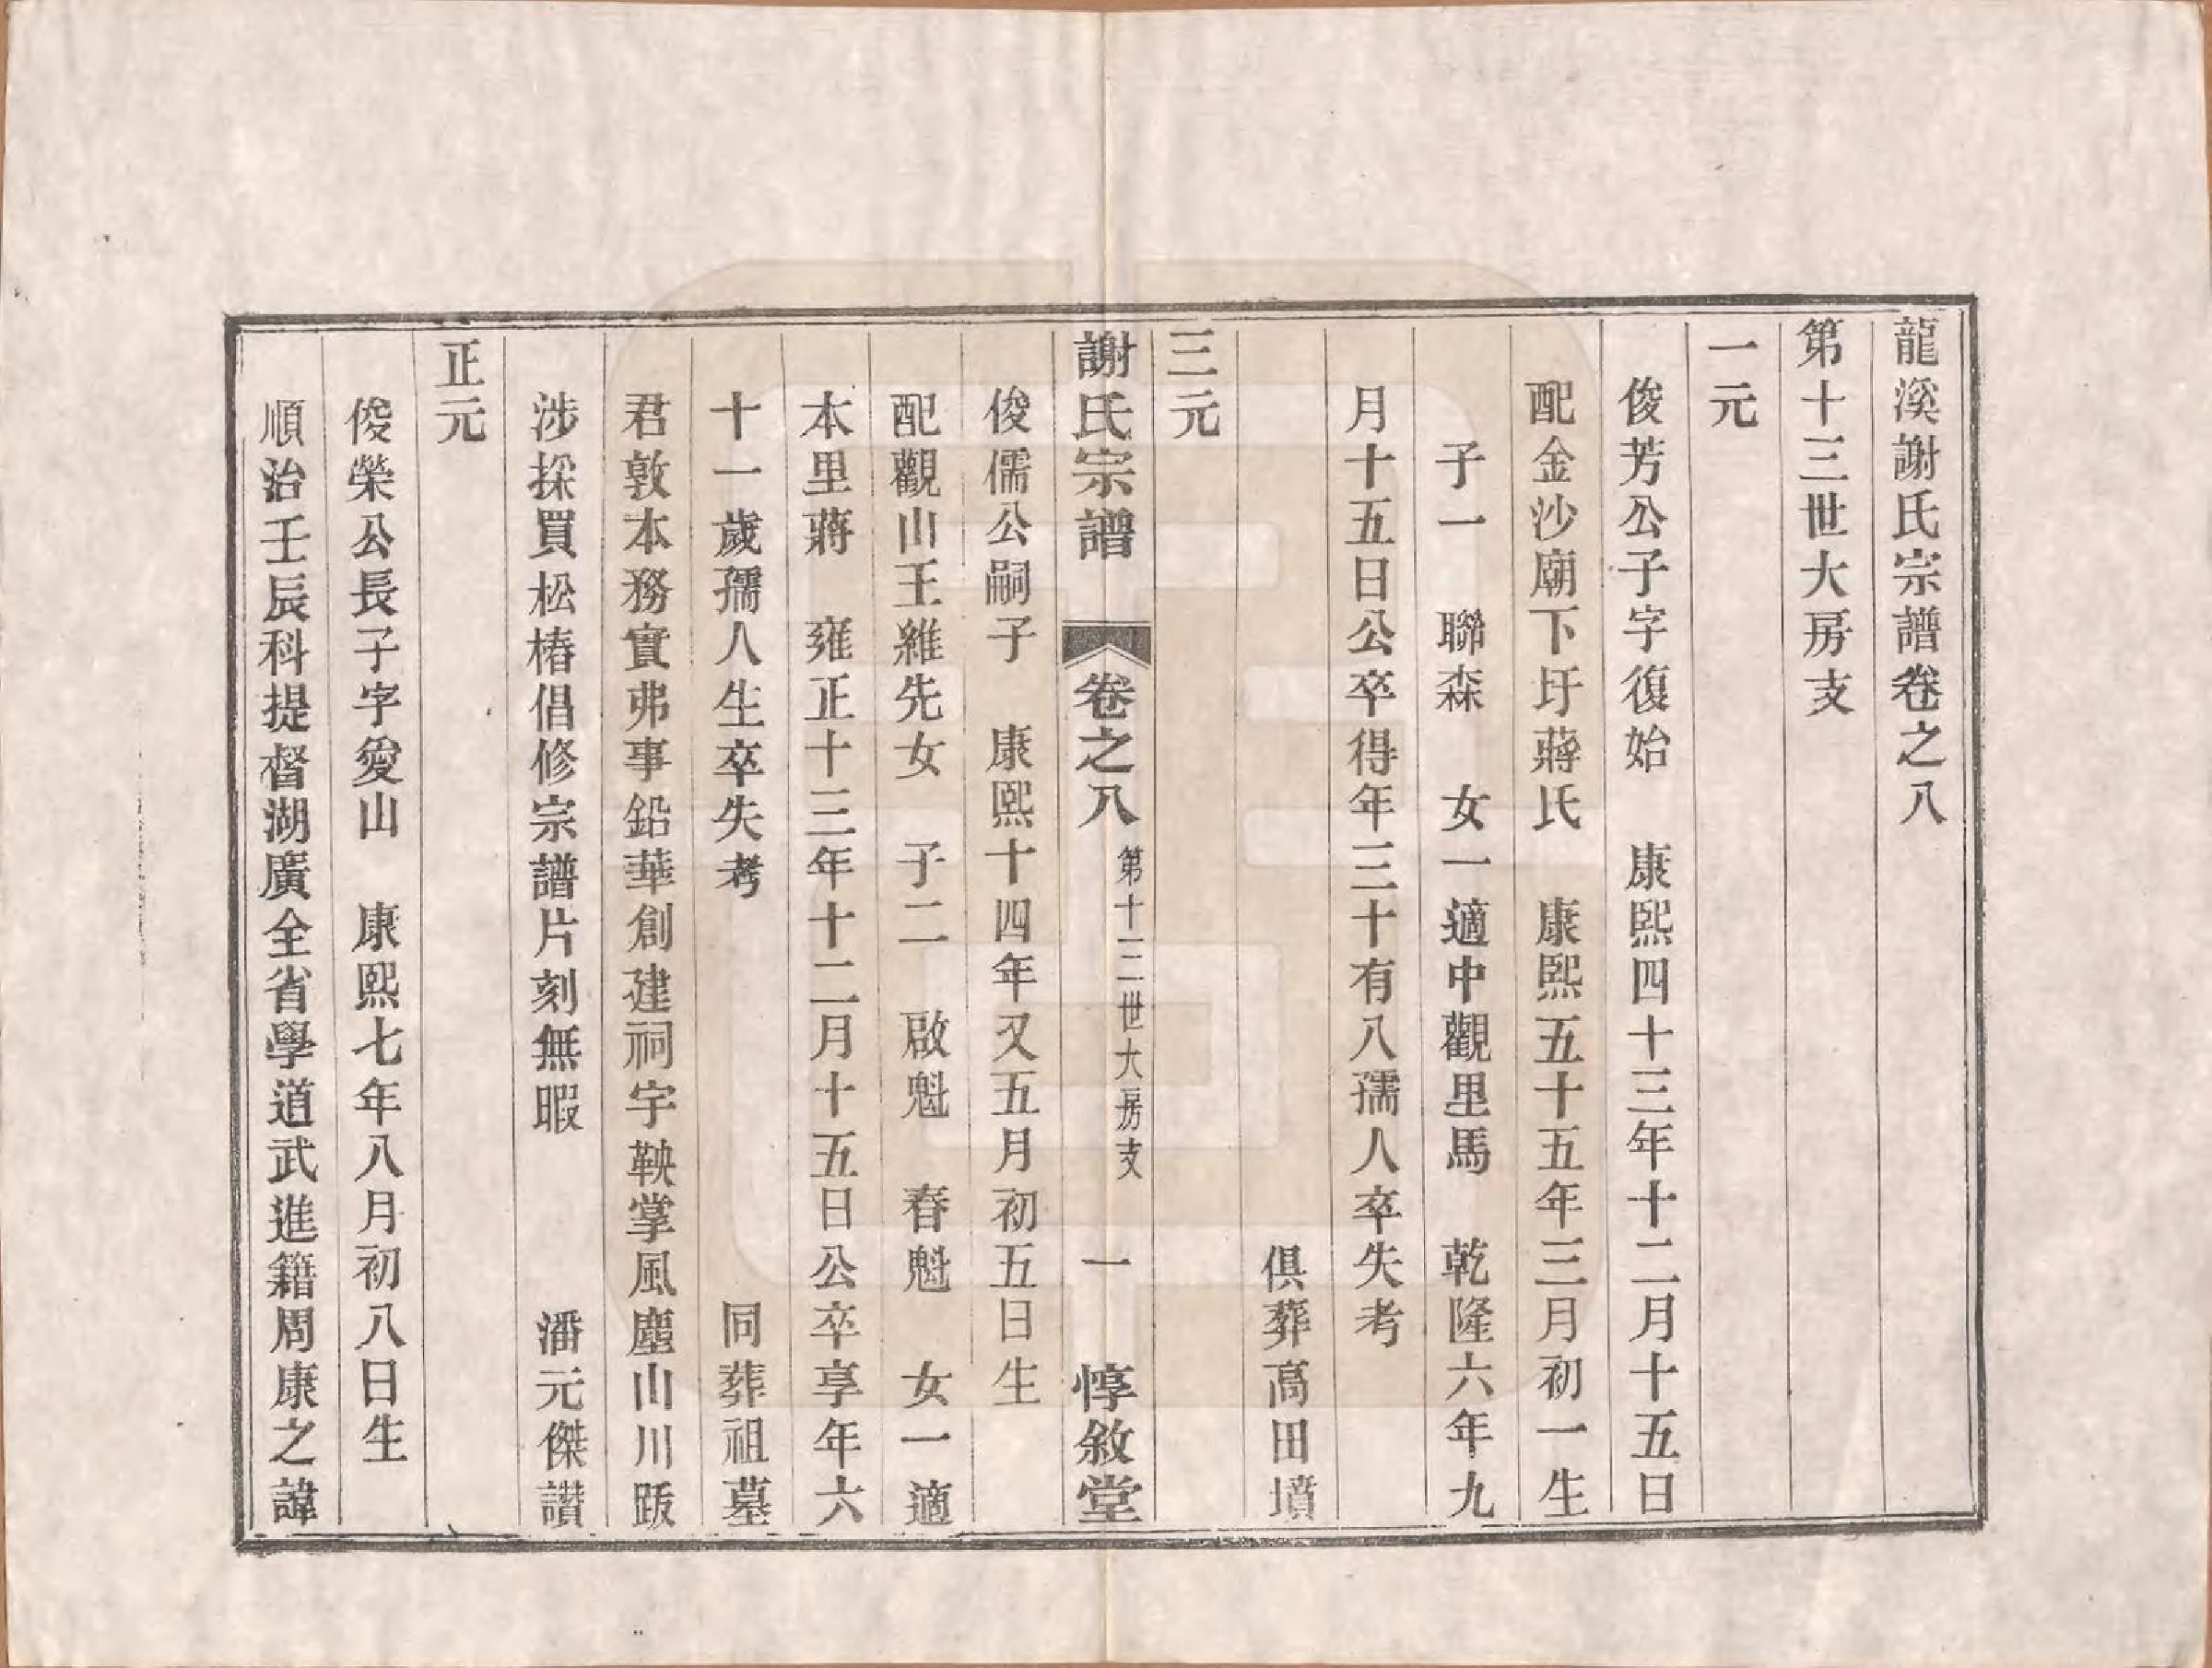 龍溪謝氏宗譜卷之八
第十三世大房支
一元
俊芳公子字復始　康熙四十三年十二月十五日
配金沙廟下圩蔣氏　康熙五十五年三月初一生
子一　聯森　女一適中觀里馬　乾隆六年九
月十五日公卒得年三十有八孺人卒失考
俱葬高田墳
三元
謝氏宗譜　卷之八　第十三世大房支　一　惇敘堂
俊儒公嗣子　康熙十四年又五月初五日生
配觀山王維先女　子二　啟魁　春魁　女一適
本里蔣　雍正十三年十二月十五日公卒享年六
十一歲孺人生卒失考　同葬祖墓
君敦本務實弗事鉛華創建祠宇鞅掌風塵山川跋
涉採買松樁倡修宗譜片刻無暇　潘元傑讃
正元
俊榮公長子字愛山　康熙七年八月初八日生
順治壬辰科提督湖廣全省學道武進籍周康之諱